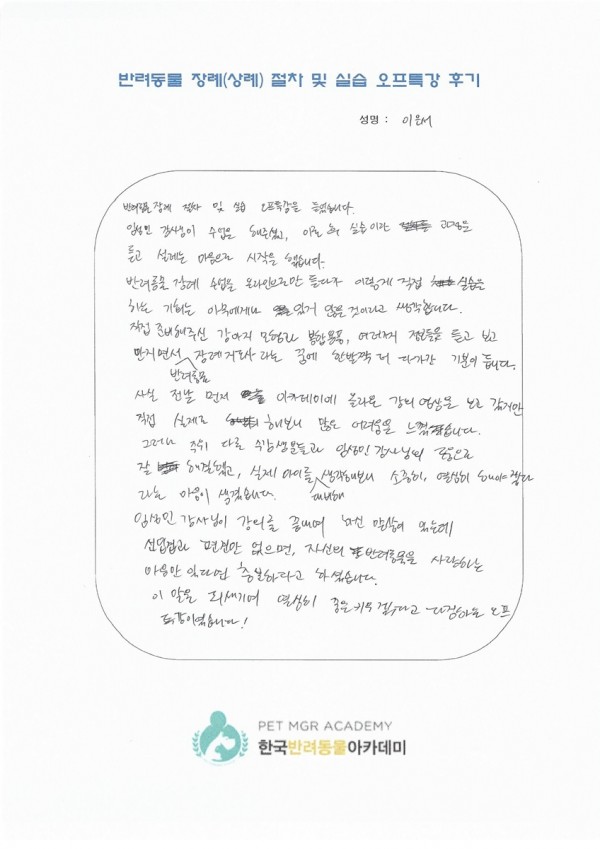 반려동물 장례(상례) 절차 및 실습 오프특강 후기
성명 : 이은서
반려동물 장례 절차 및 실습 오프특강을 들었습니다.
임성민 강사님이 수업을 해주셨고, 이론 및 실습이라 과정을
듣고 설레는 마음으로 시작을 했습니다.
반려동물 장례 수업을 온라인으로만 듣다가 이렇게 직접 실습을
하는 기회는 아무에게나 있기 않을 것이라고 생각합니다.
직접 준비해주신 강아지 모형과 용품, 여러가지 것들을 듣고 보고
만지면서 반려동물 장례지도사라는 꿈에 한발짝 더 다가간 기분이 듭니다.
사실 전날 먼저 아카데미에 올라온 강의 영상을 보고 갔지만
직접 실제로 해보니 많은 어려움을 느꼈습니다.
그러나 주위 다른 수강생분들과 임성민 강사님의 도움으로
잘 해결했고, 실제 아이를 대비해 생각해보니 소중히, 열심히 해야겠다
라는 마음이 생겼습니다.
임성민 강사님이 강의를 끝내며 하신 말씀이 있는데
선입견과 편견만 없으면, 자신의 반려동물을 사랑하는
마음만 있다면 충분하다고 하셨습니다.
이 말을 되새기며 열심히 다짐하는 오프
특강이었습니다!
PET MGR ACADEMY
한국반려동물아카데미